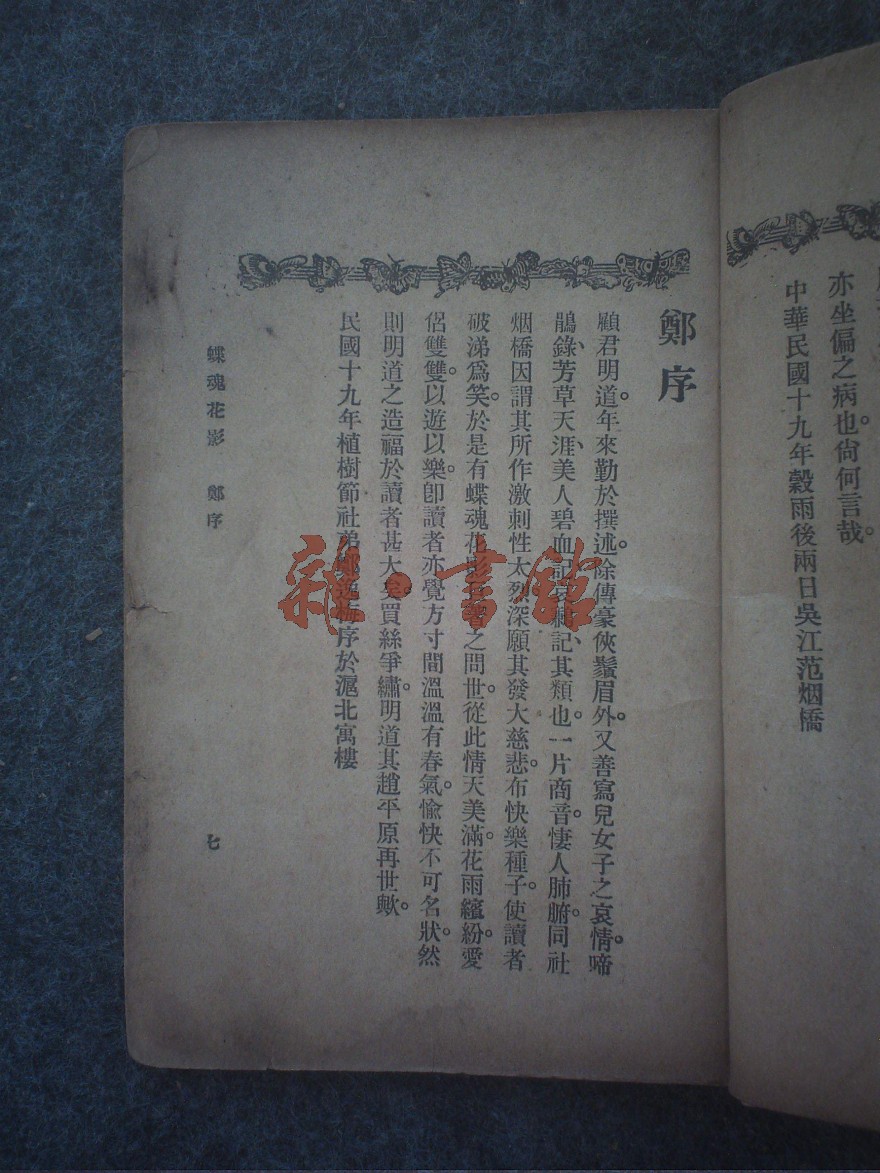 亦坐偏之病也。尙何言哉。
中華民國十九年穀雨後兩日吳江范烟橋
鄭序
顧君明道。年來勤於撰述。除傳豪俠鬚眉外。又善寫兒女子之哀情。啼
鵑錄、芳草天涯、美人碧血記、哀鶼記、其類也。一片商音。悽人肺腑。同社
烟橋因謂其所作激刺性太烈深願其發大慈悲。布快樂種子。使讀者
破涕爲笑。於是有蝶魂花影之問世。從此情天美滿。花雨繽紛。愛
侶雙雙。以遊以樂。卽讀者亦覺方寸間溫溫有春氣。愉快不可名狀。然
則明道之造福於讀者甚大矣。買絲爭繡。明道其趙平原再世歟。
民國十九年植樹節社弟鄭逸梅序於滬北寓樓
蝶魂花影 鄭序
七
雜·書館